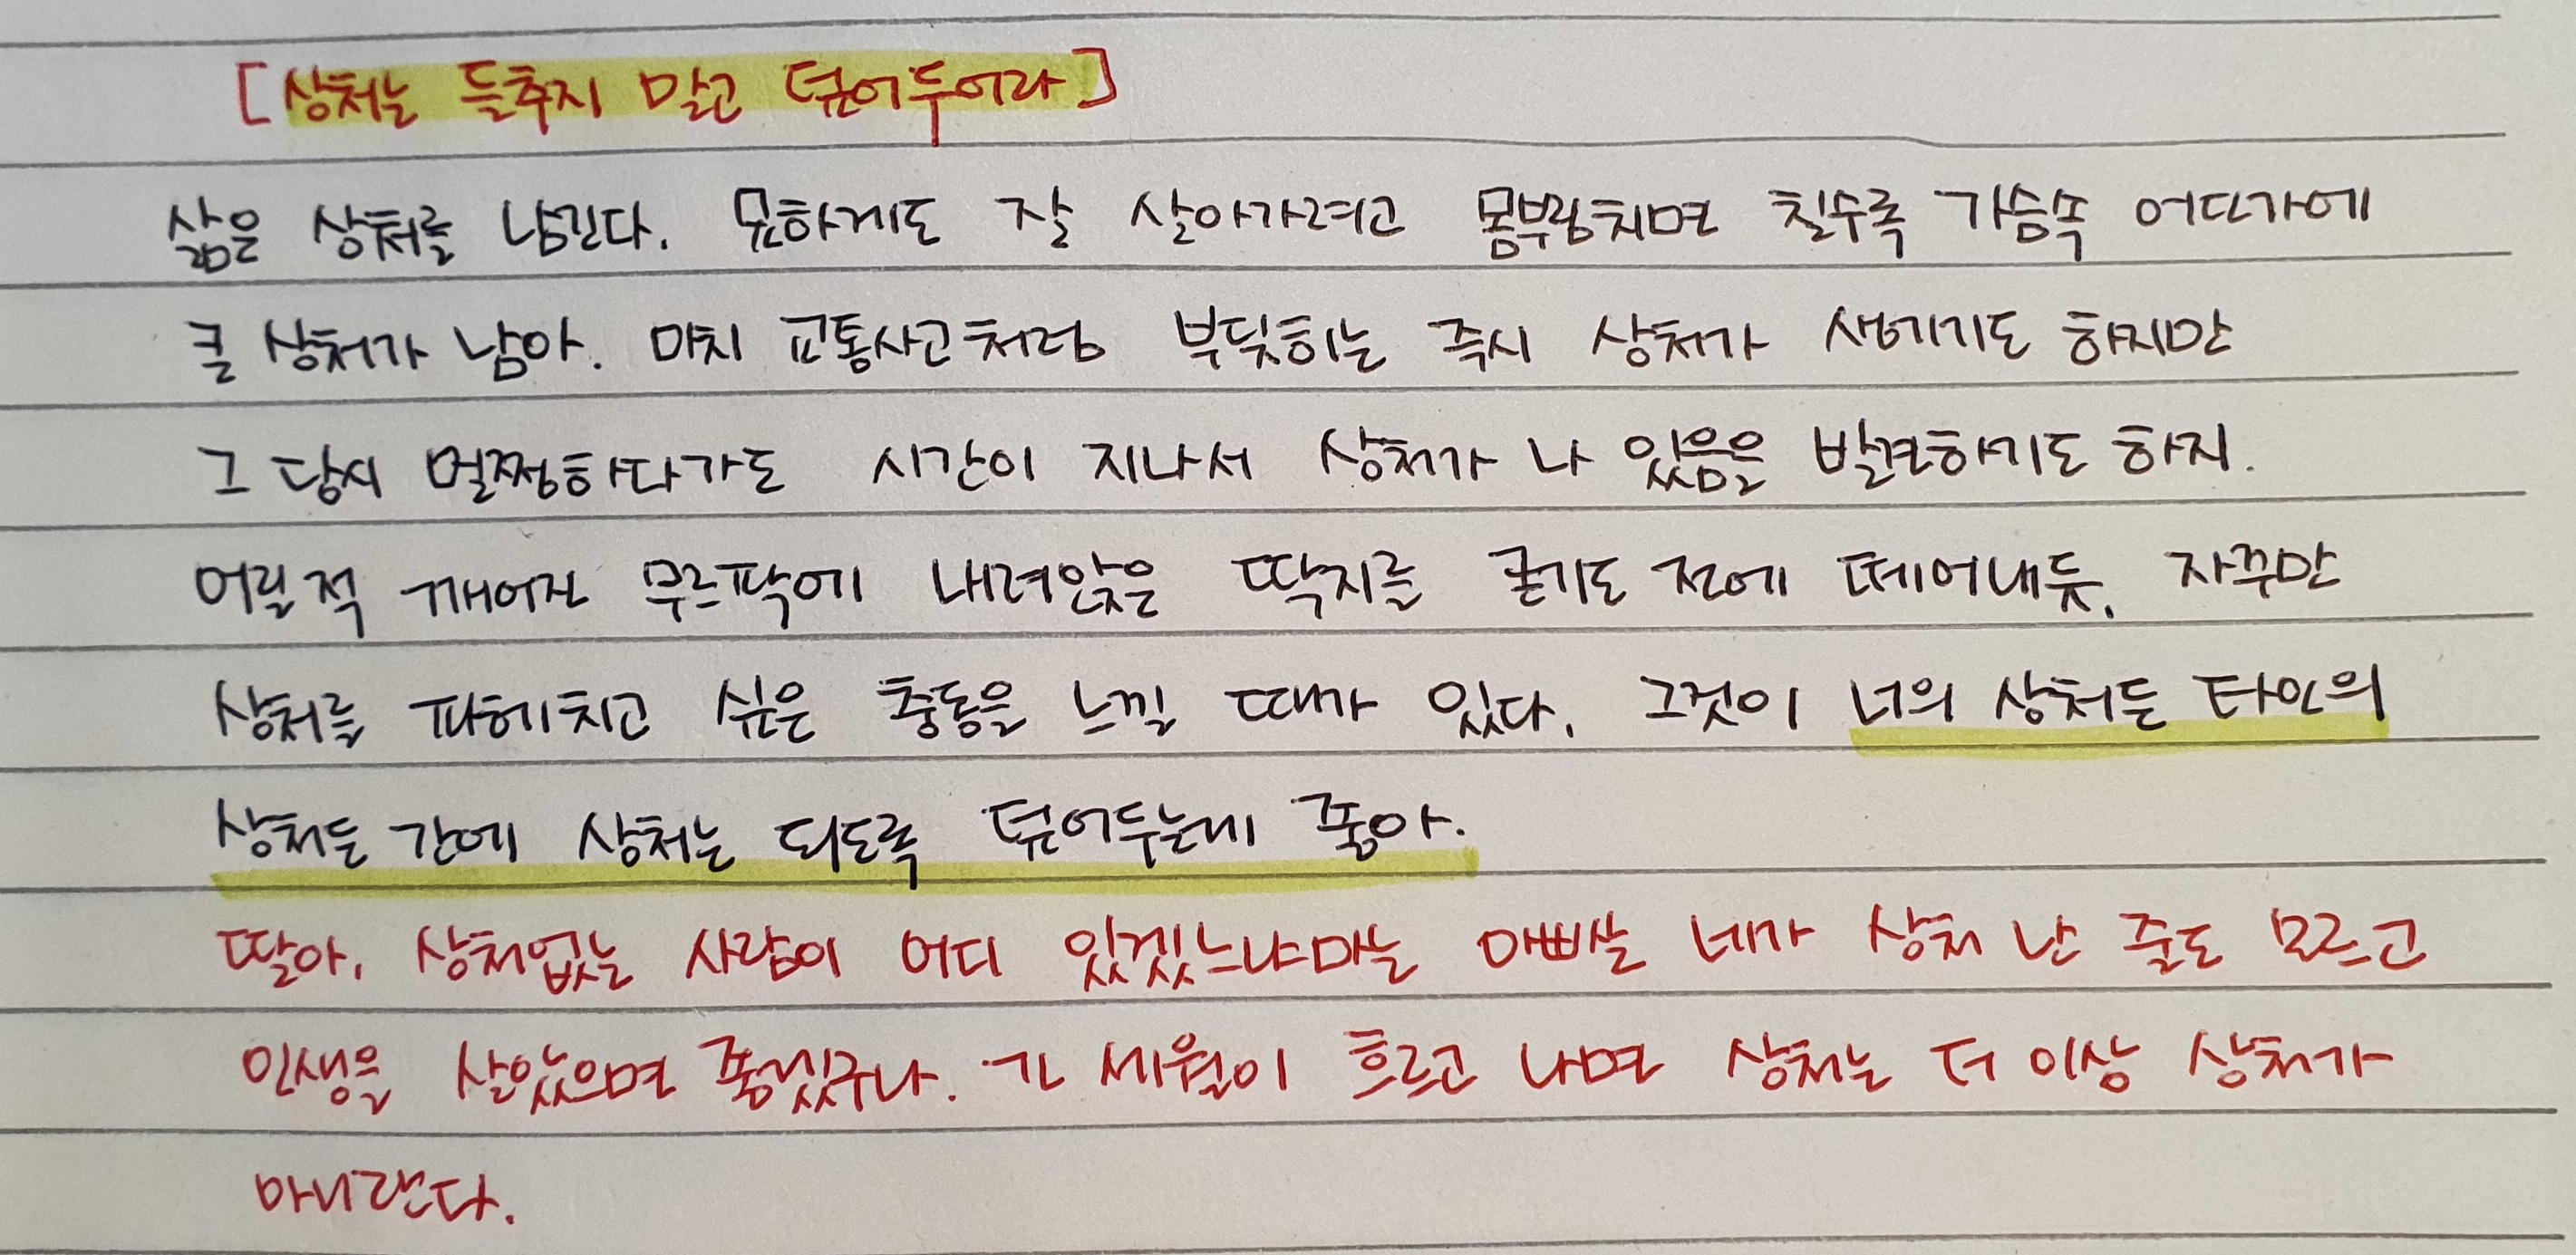 [상처는 들추지 말고 덮어두어라]
삶은 상처를 남긴다. 묘하게도 잘 살아가려고 몸부림치면 칠수록 가슴속 어딘가에
큰 상처가 남아. 마치 교통사고처럼 부딪히는 즉시 상처가 생기기도 하지만
그 당시 멀쩡하다가도 시간이 지나서 상처가 나 있음을 발견하기도 하지.
어릴 적 깨어진 무르팍에 내려앉은 딱지를 굳기도 전에 떼어내듯, 자꾸만
상처를 파헤치고 싶은 충동을 느낄 때가 있다. 그것이 너의 상처든 타인의
상처든 간에 상처는 되도록 덮어두는게 좋아.
딸아, 상처없는 사람이 어디 있겠느냐마는 아빠는 네가 상처 난 줄도 모르고
인생을 살았으면 좋겠구나. 긴 세월이 흐르고 나면 상처는 더 이상 상처가
아니란다.